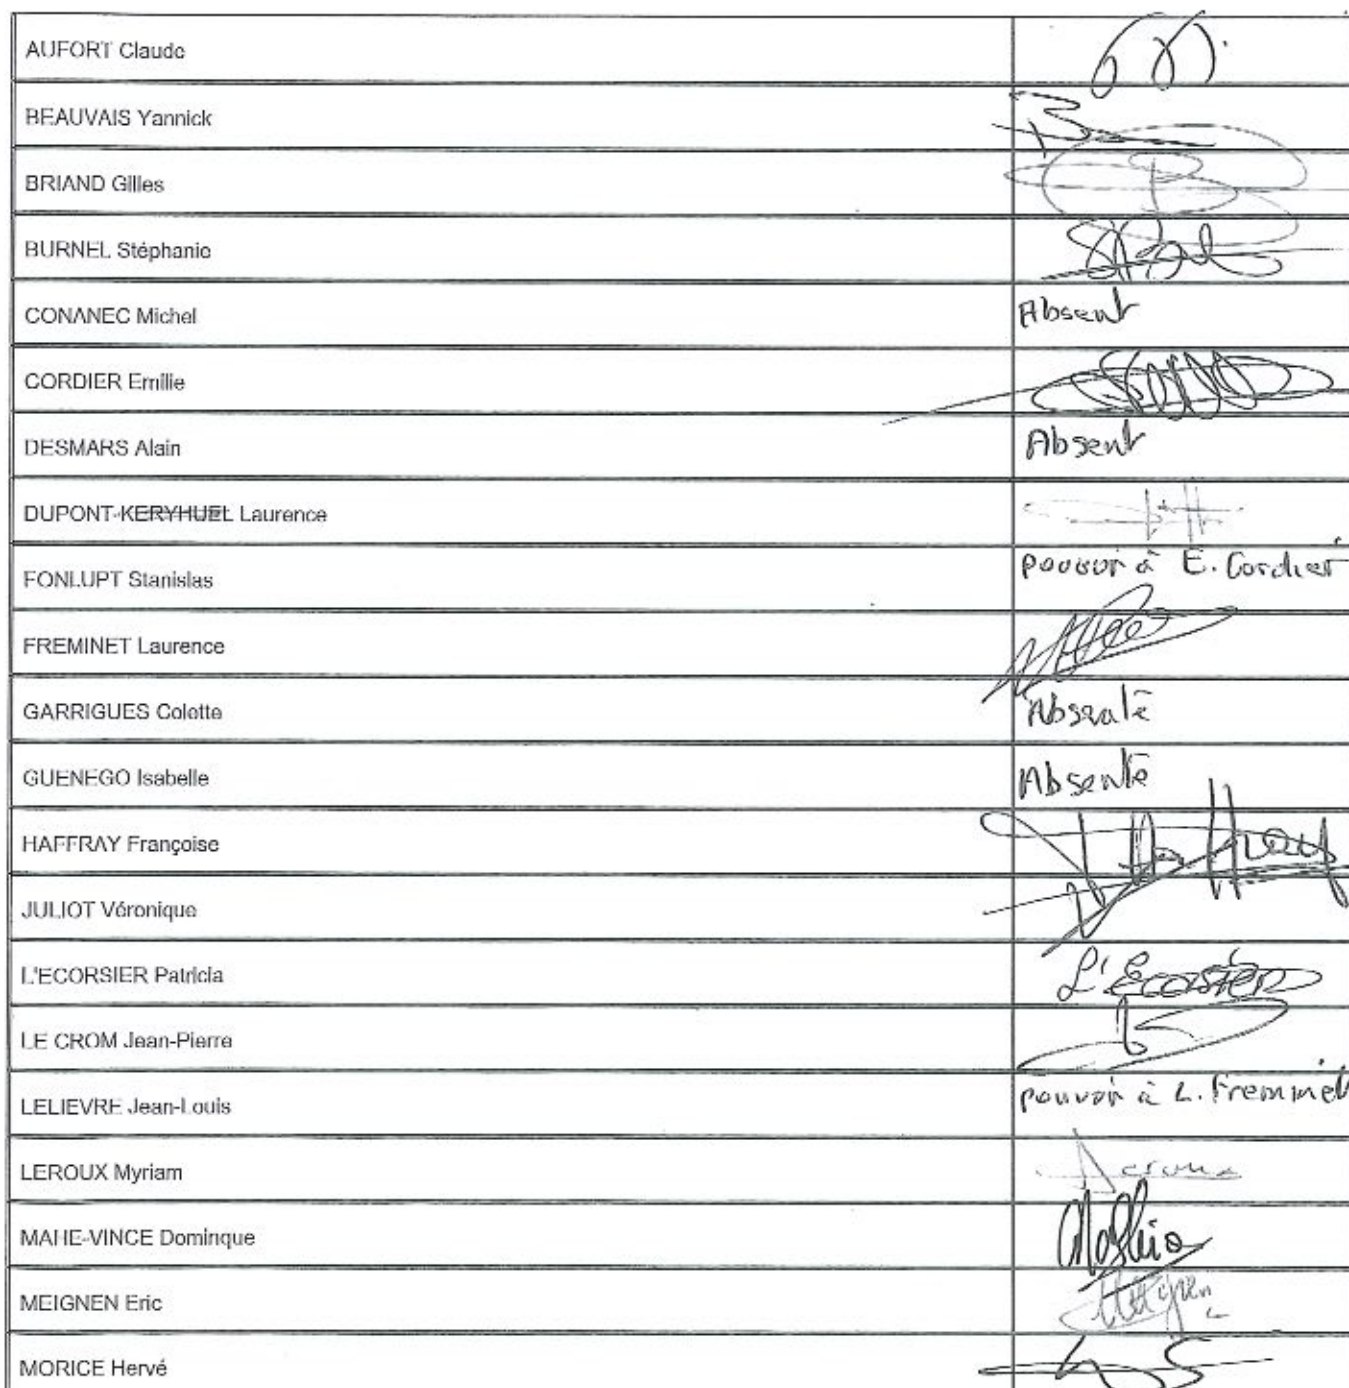 AUFORT Claude
BEAUVAIS Yannick
BRIAND Gilles
BURNEL Stéphanie
CONANEC Michel Absent
CORDIER Emilie
DESMARS Alain Absent
DUPONT-KERYHUEL Laurence
FONLUPT Stanislas pouvoir à E. Cordier
FREMINET Laurence
GARRIGUES Colette Absente
GUENEGO Isabelle Absente
HAFFRAY Françoise Haffray
JULIOT Véronique
L'ECORSIER Patricia L'Ecorsier
LE CROM Jean-Pierre
LELIEVRE Jean-Louis pouvoir à L. Freminet
LEROUX Myriam Leroux
MAHE-VINCE Dominique
MEIGNEN Eric Meignen
MORICE Hervé